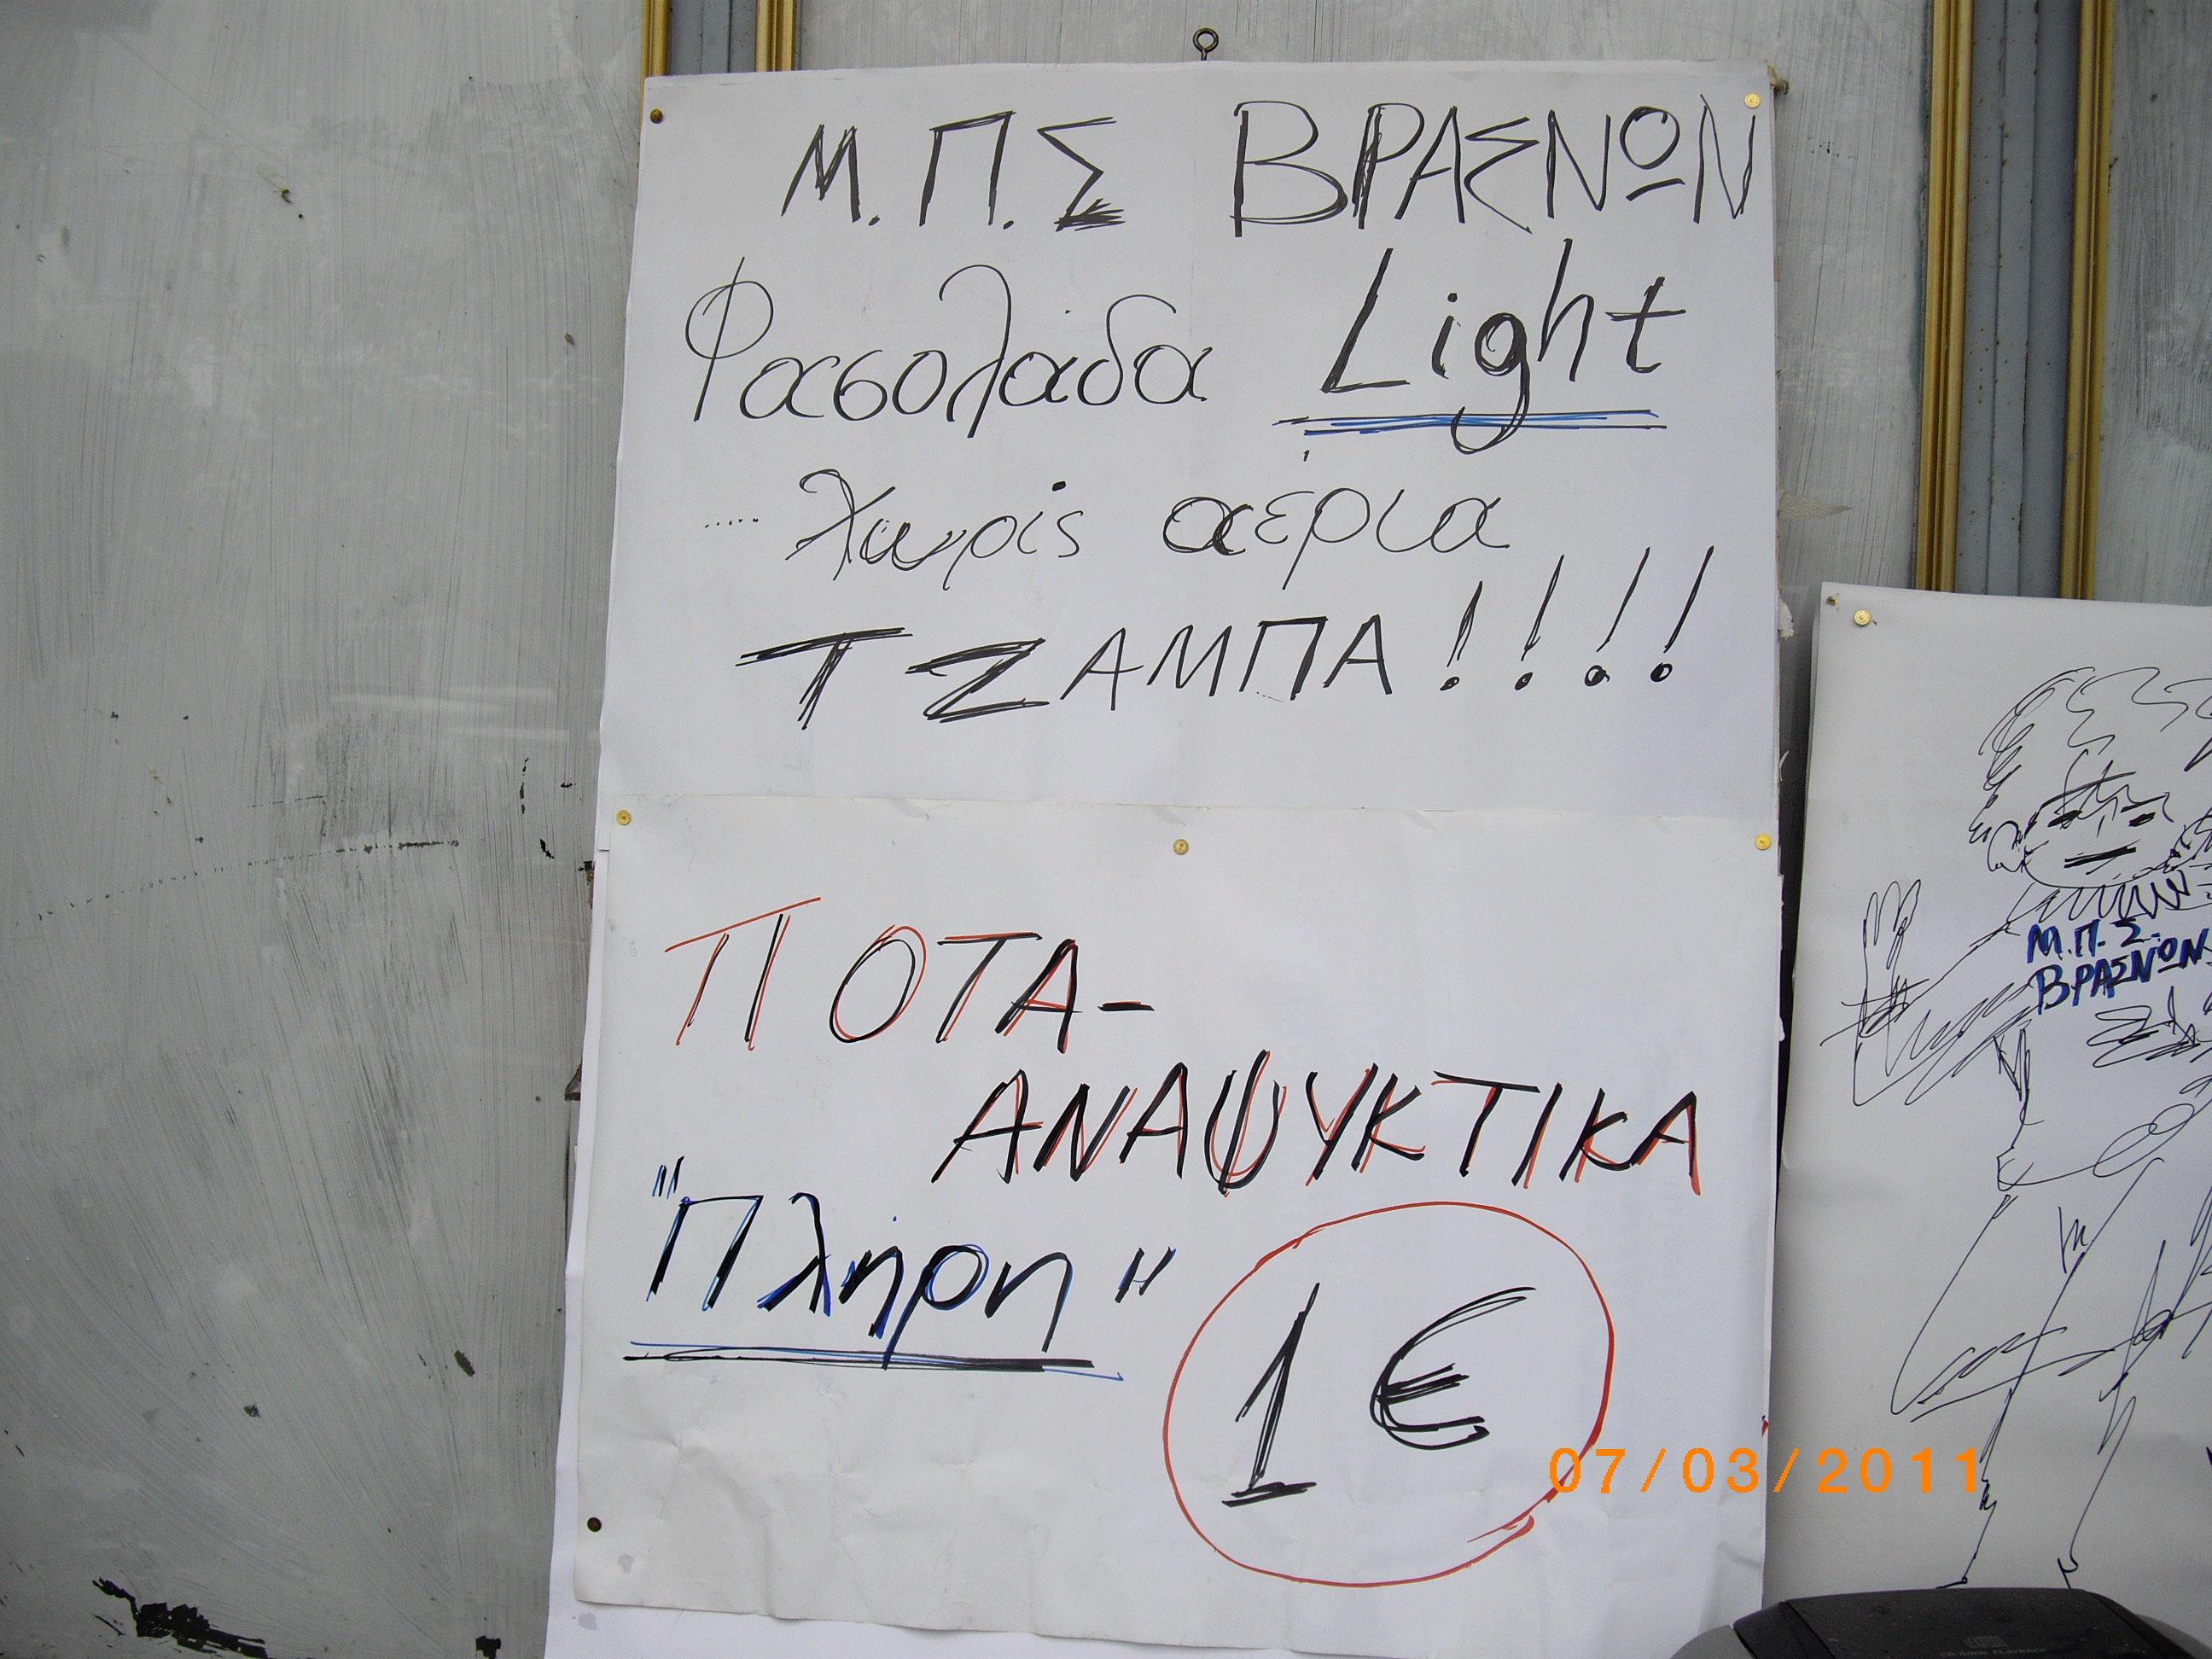 Μ.Π.Σ ΒΡΑΣΝΩΝ
Φασολάδα Light
..... Χωρίς αέρια
ΤΖΑΜΠΑ!!!!
ΠΟΤΑ-
ΑΝΑΨΥΚΤΙΚΑ
"Πλήρη"
1€
Μ.Π.Σ.
ΒΡΑΣΝΩΝ
07/03/2011